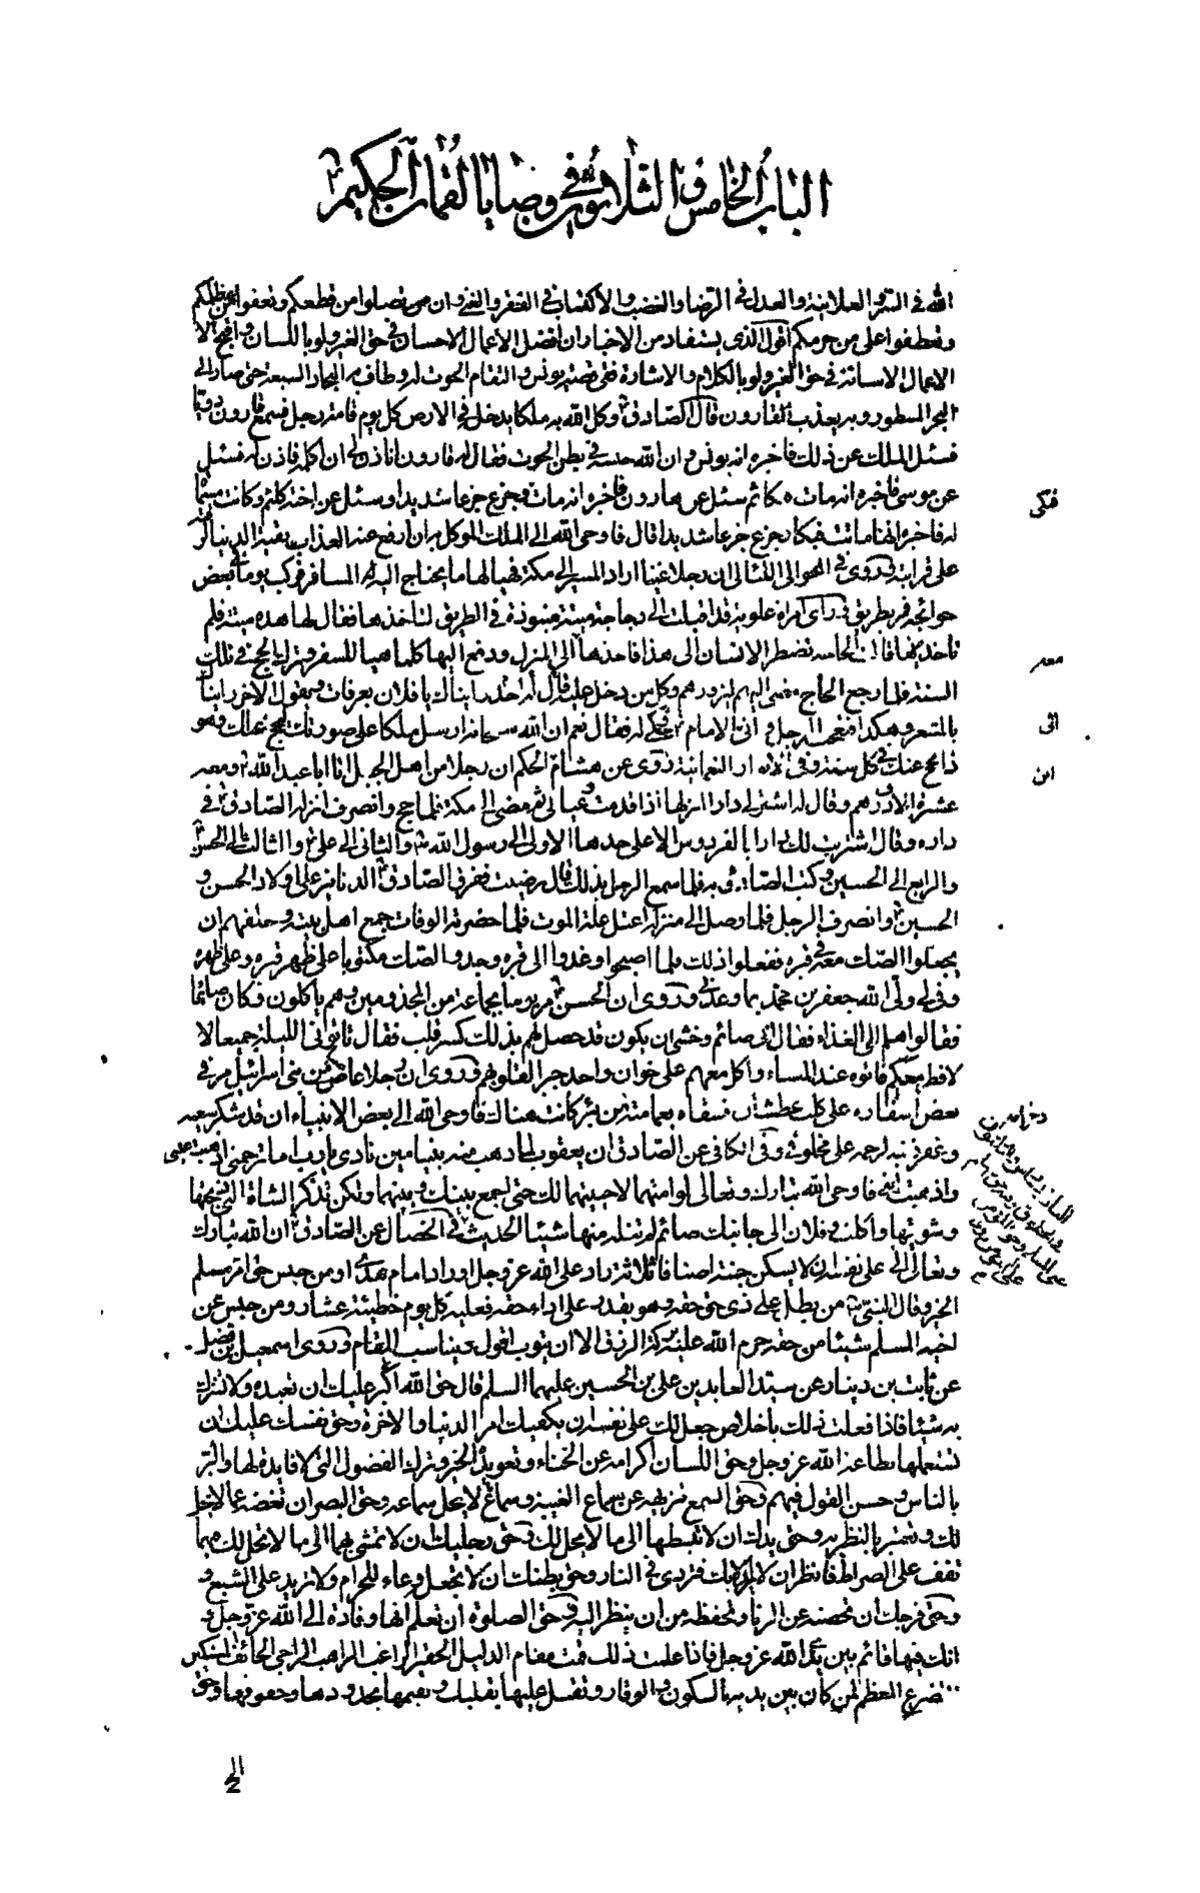 الباب الخامس والثلاثون في وصايا لقمان الحكيم
الله في السر والعلانية والعدل في الرضا والغضب والاكتساب في الفقر والغنى وان تصلوا من قطعكم وتعفوا عمن ظلمكم
وتعطفوا على من حرمكم اقول الذى يستفاد من الاخبار ان افضل الاعمال الاحسان في حق الغير ولو باللسان واقبح الا
الاعمال الاسائة في حق الغير ولو بالكلام والاشارة ففي قصة يونس والتقام الحوت له وطاف به البحار السبعة حتى صار الى
البحر المسجور وبه يعذب قارون قال الصادق وكل الله به ملكا يدخل في الارض كل يوم قامة رجل فسمع قارون دويا
فسئل الملك عن ذلك فاخبره انه يونس وان الله حبسه في بطن الحوت فقال له قارون اتاذن لي ان اكلمه فاذن له فسئل
عن موسى فاخبره انه مات فبكا ثم سئل عن هارون فاخبره انه مات فجزع جزعا شديدا وسئل عن اخته كلثم وكانت مسماة
له فاخبره انها ماتت فبكا وجزع جزعا شديدا قال فاوحى الله الى الملك الموكل به ان ارفع عنه العذاب بقية الدنيا لرقته
على قرابته وروى في العوالي اللئالى ان رجلا غنيا اراد المسير الى مكة فهيا لها ما يحتاج اليه المسافر فركب يوما في بعض
حوائجه فمر بطريق فراى امراة علوية قد اقبلت الى دجاجة ميتة منبوذة في الطريق لتاخذها فقال لها هذه ميتة فلم
تاخذيها فقالت الحاجة تضطر الانسان الى هذا فاخذها الى المنزل ودفع اليها كلما هيا للسفر وترك الحج في تلك
السنة فلما رجع الحاج مضى اليهم ليزورهم وكل من دخل عليه قال له اخر رايناك يا فلان بعرفات ويقول الاخر رايناك
بالمشعر وهكذا فعجب الرجل واتى الامام فحكى له فقال نعم ان الله سبحانه ارسل ملكا على صورتك يحج عنك وهو
ذا يحج عنك في كل سنة وفي الانوار النعمانية روى عن هشام الحكم ان رجلا من اهل الجبل اتا ابا عبد الله ومعه
عشرة الاف درهم وقال له اشتر لي دارا انزلها اذا قدمت وعيالى ثم مضى الى مكة فلما حج وانصرف انزله الصادق في
داره وقال اشتريت لك دارا بالفردوس الاعلى حدها الاولى الى رسول الله والثانى الى علي والثالث الى الحسن
والرابع الى الحسين وكتب الصك به فلما سمع الرجل بذلك قال رضيت ففرق الصادق الدنانير على اولاد الحسن و
الحسين وانصرف الرجل فلما وصل الى منزله اعتل علة الموت فلما حضرته الوفات جمع اهل بيته وحلفهم ان
يجعلوا الصك معه في قبره ففعلوا ذلك فلما اصبحوا وغدوا الى قبره وجدوا الصك مكتوبا على ظهر قبره وعلى ظهره
وفى لي ولى الله جعفر بن محمد بما وعدنى وروى ان الحسن مر يوما بجماعة من المجذومين وهم ياكلون فكان صائما
فقالوا هلم الى الغذاء فقال اني صائم وخشى ان يكون قد حصل لهم بذلك كسر قلب فقال تاتونى الليلة جميعا لا
لافطر معكم فاتوه عند المساء واكل معهم على خوان واحد جبرا لقلوبهم وروى ان رجلا عاص من بنى اسرائيل مر في
بعض اسفاره على كلب عطشان فسقاه بعمامته من بئر كانت هناك فاوحى الله الى بعض الانبياء ان قد شكر سعيه
وغفر ذنبه لرحمه على مخلوقى وفي الكافى عن الصادق ان يعقوب لما ذهب منه بنيامين نادى يا رب اما ترحمنى اذهبت عينى
واذهبت ابني فاوحى الله تبارك وتعالى لو امتهما لاحييتهما لك حتى اجمع بينك وبينهما ولكن تذكر الشاة التي ذبحتها
وشويتها واكلت وفلان الى جانبك صائم لم تنله منها شيئا الحديث في الخصال عن الصادق ان الله تبارك
وتعالى الى على نفسه ان لا يسكن جنته اصنافا ثلاثة راد على الله عز وجل او راد امام هدى او من حبس حق امرء مسلم
الخبر وقال النبي من يطل على ذى حق حقه وهو يقدر على اداء حقه فعليه كل يوم خطيئة عشار ومن حبس عن
اخيه المسلم شيئا من حقه حرم الله عليه بركة الرزق الا ان يتوب اقول ويناسب المقام وروى اسمعيل بن فضل
عن ثابت بن دينار عن سيد العابدين علي بن الحسين عليهما السلم قال حق الله اكبر عليك ان تعبده ولا تشرك
به شيئا فاذا فعلت ذلك باخلاص جعل لك على نفسه ان يكفيك امر الدنيا والاخرة وحق نفسك عليك ان
تستعملها بطاعة الله عز وجل وحق اللسان اكرامه عن الخناء وتعويده الخير وترك الفضول التى لا فايدة لها والبر
بالناس وحسن القول فيهم وحق السمع تنزيهه عن سماع الغيبة وسماع ما لا يحل سماعه وحق البصر ان تغضه عما لا يحل
لك وتعتبر بالنظر به وحق يدك ان لا تبسطها الى ما لا يحل لك وحق رجليك ان لا تمشى بهما الى ما لا يحل لك فبهما
تقف على الصراط فانظر ان لا تزلا بك فتردى في النار وحق بطنك ان لا تجعله وعاء للحرام ولا تزيد على الشبع و
وحق فرجك ان تحصنه عن الزنا وتحفظه من ان ينظر اليه وحق الصلوة ان تعلم انها وفادة الى الله عز وجل و
انك فيها قائم بين يدى الله عز وجل فاذا علمت ذلك قمت مقام الذليل الحقير الراغب الراهب الراجى الخائف المستكين
المتضرع المعظم لمن كان بين يديه بالسكون والوقار وتقبل عليها بقلبك وتقيمها بحدودها وحقوقها وحق
فبكى
معه
اتى
ابن
الحج